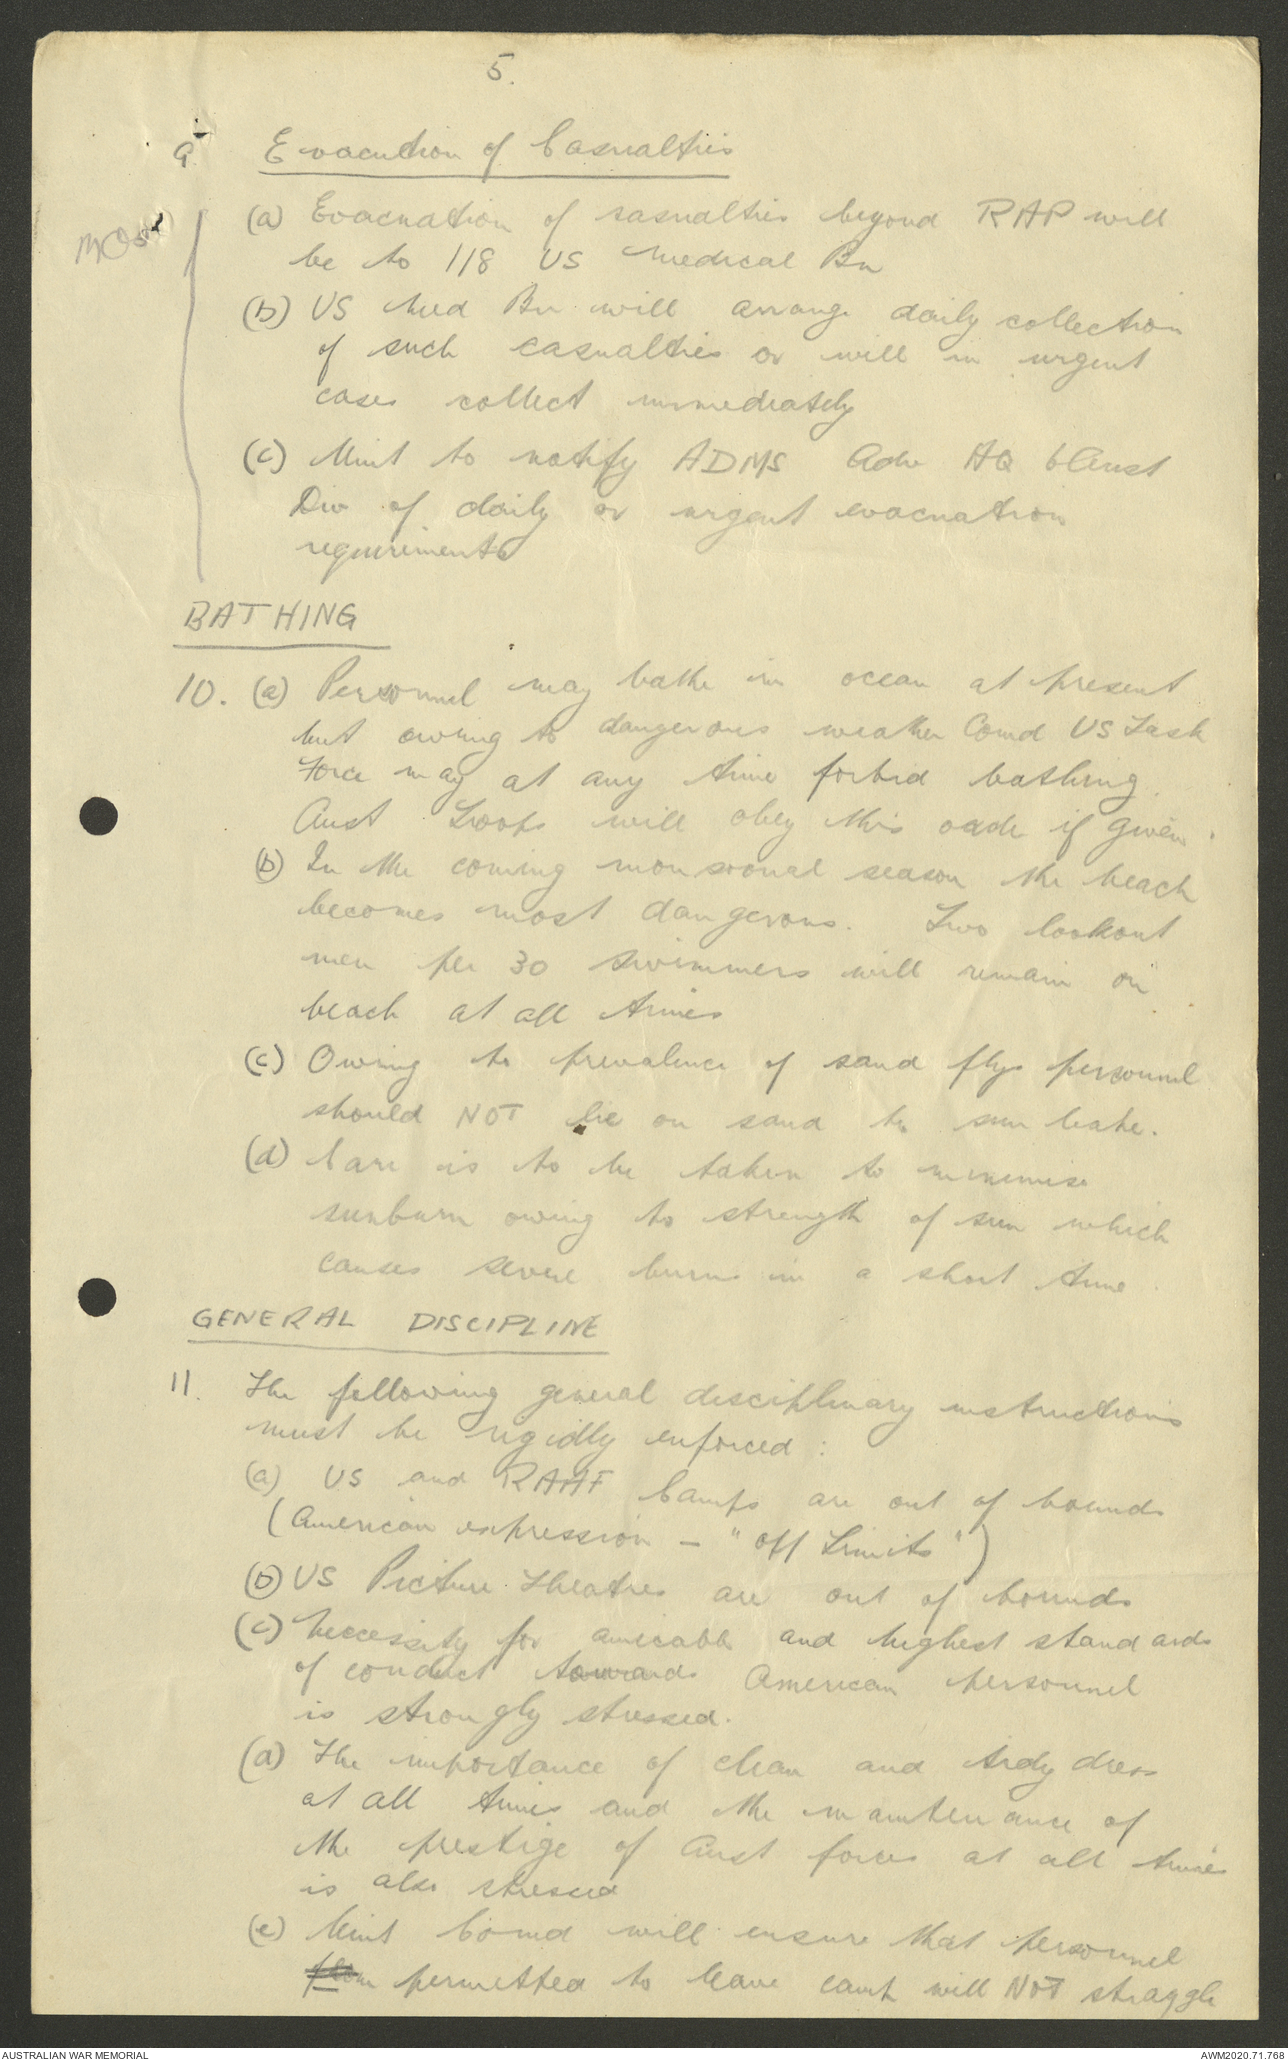 5.
9 Evacuation of Casualties
MOs
(a) Evacuation of casualties beyond RAP will
be to 118 US Medical Bn
(b) US Med Bn will arrange daily collection
of such casualties or will in urgent
cases collect immediately
(c) Unit to notify ADMS Adv HQ 6 Aust
Div of daily or urgent evacuation
requirements
BATHING
10. (a) Personnel may bathe in ocean at present
but owing to dangerous weather Comd US Task
Force may at any time forbid bathing.
Aust Troops will obey this order if given.
(b) In the coming monsoonal season the beach
becomes most dangerous. Two lookout
men per 30 swimmers will remain on
beach at all times
(c) Owing to prevalence of sand flys personnel
should NOT lie on sand to sun bake.
(d) Care is to be taken to minimise
sunburn owing to strength of sun which
causes severe burns in a short time.
GENERAL DISCIPLINE
11. The following general disciplinary instructions
must be rigidly enforced :
(a) US and RAAF Camps are out of bounds
(American expression - "Off Limits")
(b) US Picture Theatres are out of bounds
(c) Necessity for amicable and highest standards
of conduct towards American personnel
is strongly stressed.
(d) The importance of clean and tidy dress
at all times and the maintenance of
the prestige of Aust forces at all times
is also stressed
(e) Unit Comd will ensure that personnel
from permitted to leave camp will NOT straggle
AUSTRALIAN WAR MEMORIAL
AWM2020.71.768